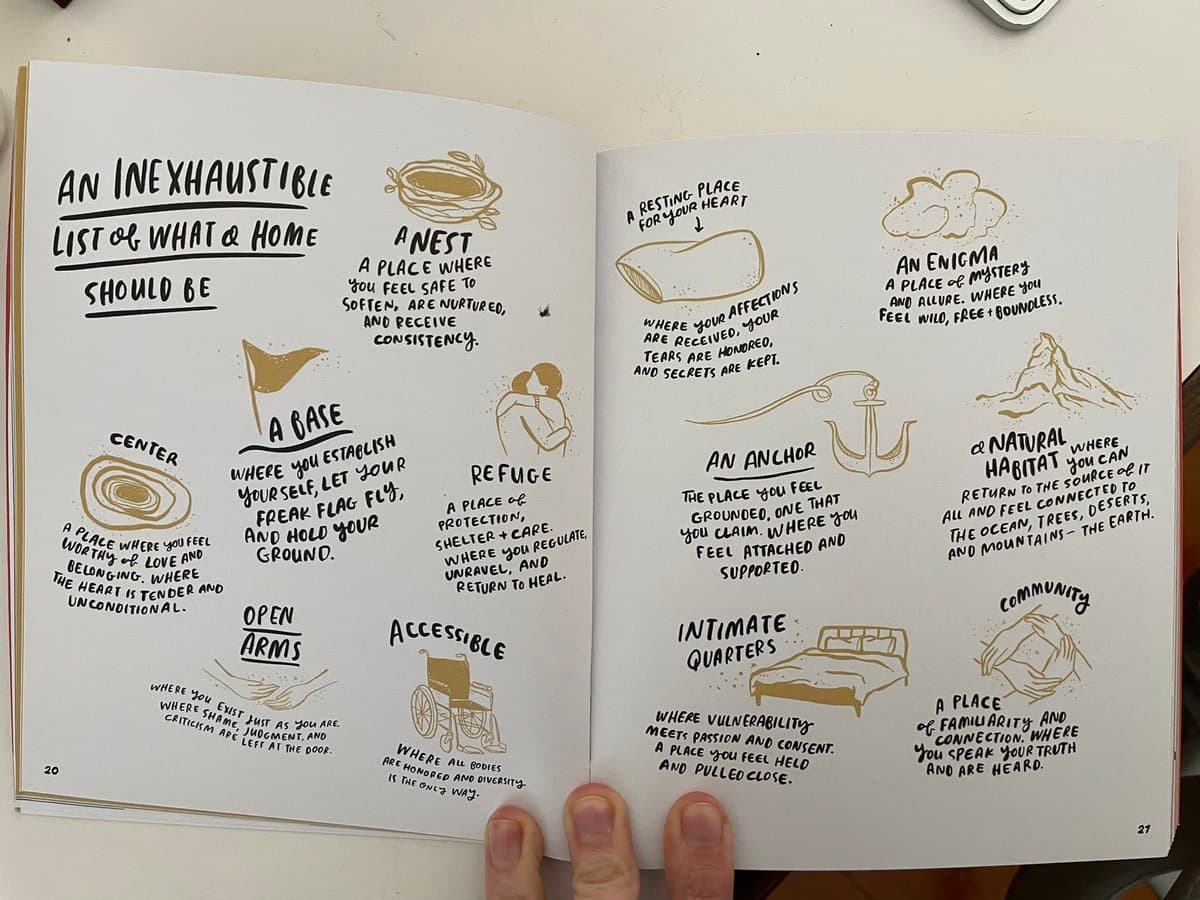 AN INEXHAUSTIBLE
LIST of WHAT a HOME
SHOULD BE
A NEST
A PLACE WHERE
you FEEL SAFE TO
SOFTEN, ARE NURTURED,
AND RECEIVE
CONSISTENCY.
A BASE
WHERE you ESTABLISH
YOURSELF, LET YOUR
FREAK FLAG FLY,
AND HOLD YOUR
GROUND.
CENTER
A PLACE WHERE YOU FEEL
WORTHY of LOVE AND
BELONGING. WHERE
THE HEART IS TENDER AND
UNCONDITIONAL.
REFUGE
A PLACE of
PROTECTION,
SHELTER + CARE.
WHERE you REGULATE,
UNRAVEL, AND
RETURN TO HEAL.
OPEN
ARMS
WHERE YOU EXIST JUST AS YOU ARE.
WHERE SHAME, JUDGMENT, AND
CRITICISM ARE LEFT AT THE DOOR.
ACCESSIBLE
WHERE ALL BODIES
ARE HONORED AND DIVERSITY
IS THE ONLY WAY.
20
A RESTING PLACE
FOR YOUR HEART
WHERE YOUR AFFECTIONS
ARE RECEIVED, YOUR
TEARS ARE HONORED,
AND SECRETS ARE KEPT.
AN ENIGMA
A PLACE of MYSTERY
AND ALLURE. WHERE YOU
FEEL WILD, FREE + BOUNDLESS.
AN ANCHOR
THE PLACE YOU FEEL
GROUNDED, ONE THAT
YOU CLAIM. WHERE YOU
FEEL ATTACHED AND
SUPPORTED.
a NATURAL
HABITAT WHERE
YOU CAN
RETURN TO THE SOURCE of IT
ALL AND FEEL CONNECTED TO
THE OCEAN, TREES, DESERTS,
AND MOUNTAINS— THE EARTH.
INTIMATE
QUARTERS
WHERE VULNERABILITY
MEETS PASSION AND CONSENT.
A PLACE YOU FEEL HELD
AND PULLED CLOSE.
COMMUNITY
A PLACE
of FAMILIARITY AND
CONNECTION. WHERE
YOU SPEAK YOUR TRUTH
AND ARE HEARD.
21